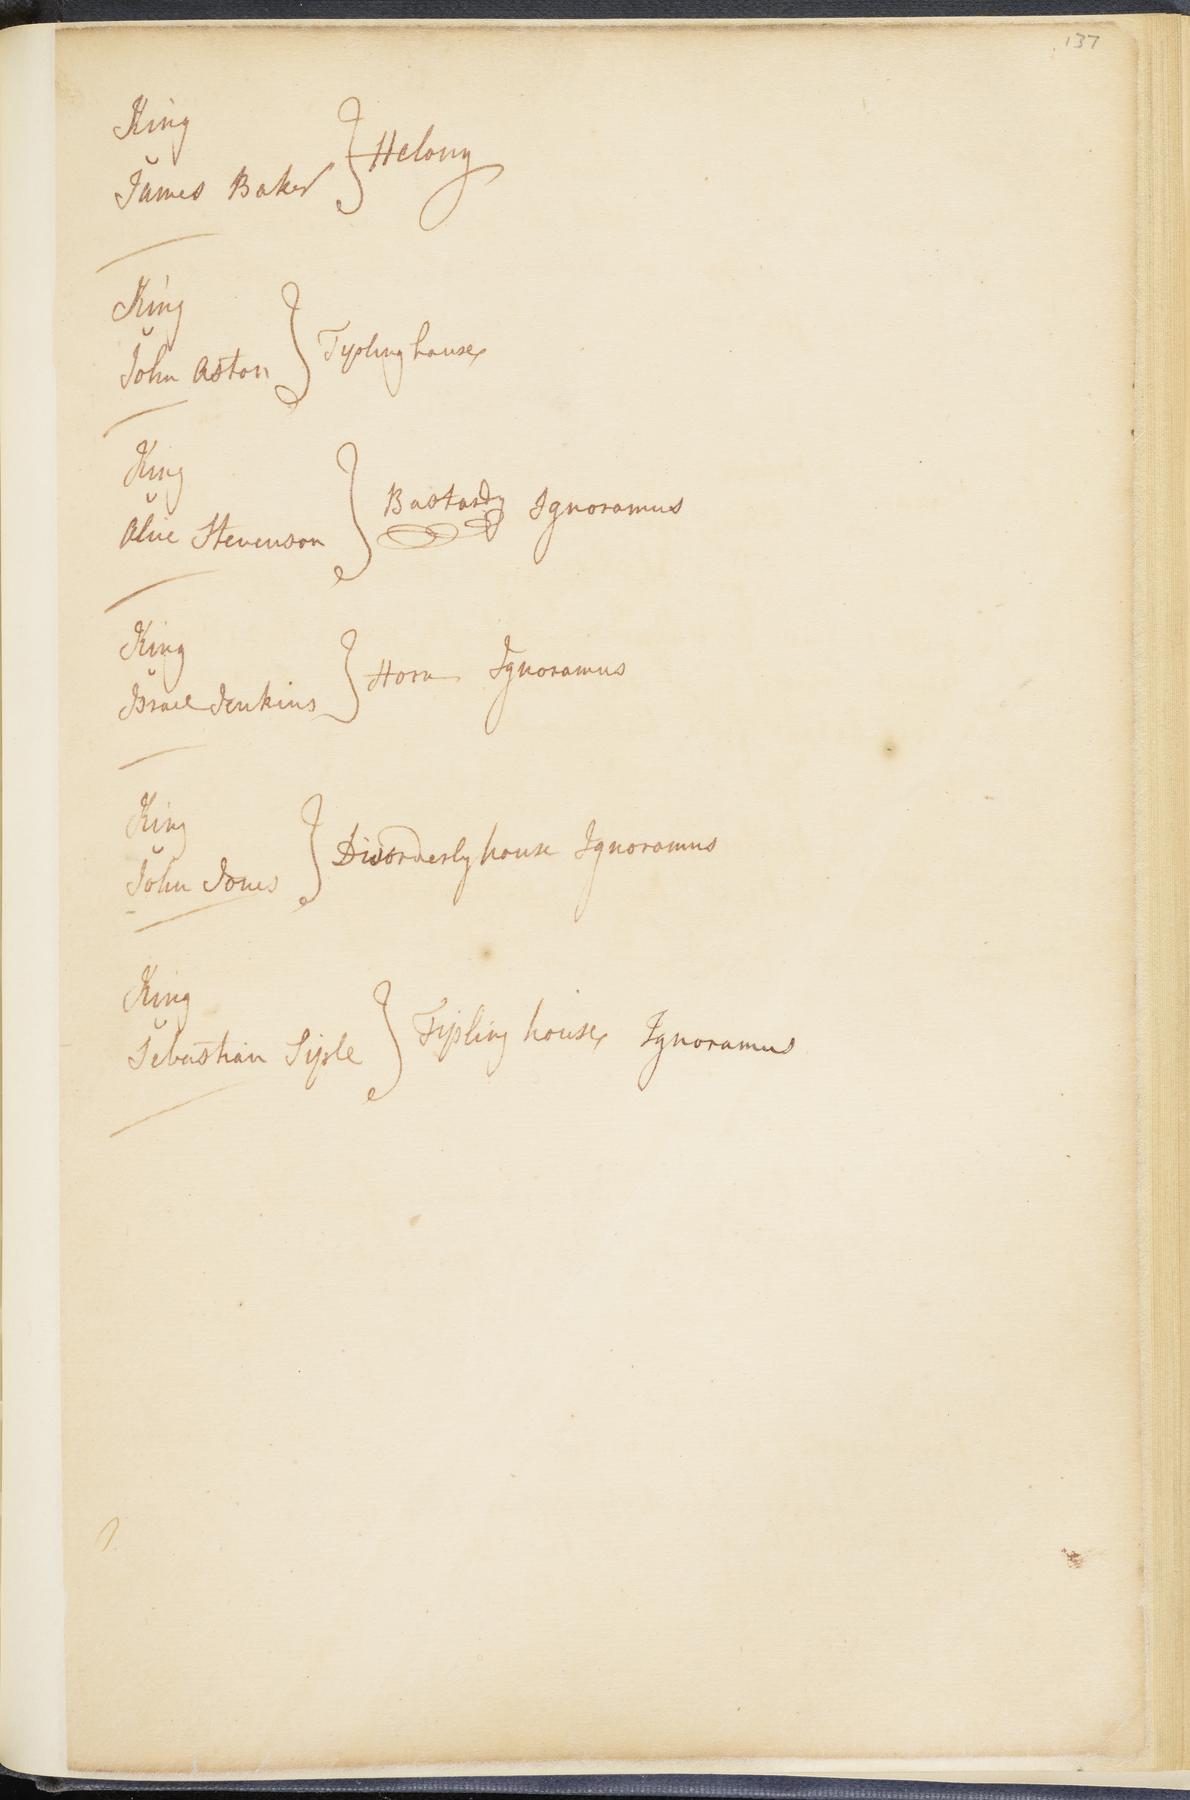 137
King
v
James Baker } Helony
King
v
John Aston } Tipling house
King
v
Olive Stevenson } Bastardy Ignoramus
King
v
Israel Jenkins } Horn Ignoramus
King
v
John Jones } Disorderly house Ignoramus
King
v
Sebastian Siple } Tipling house Ignoramus